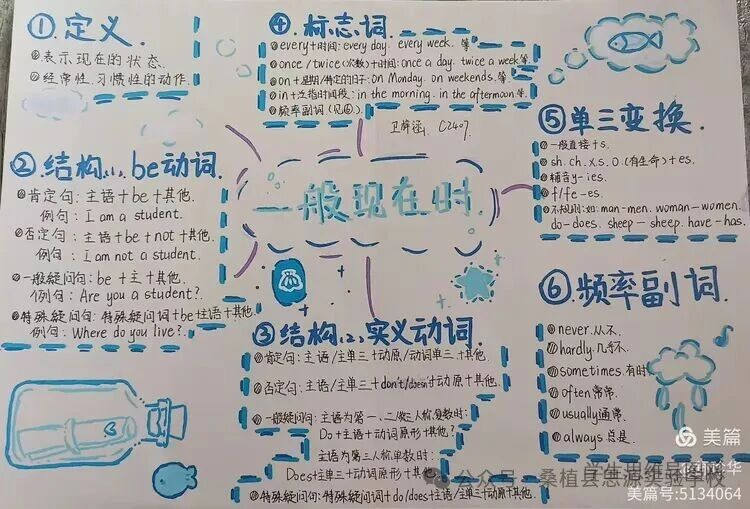 ①.定义.
①表示现在的状态.
②经常性.习惯性的动作.
②结构(1).be动词.
①肯定句:主语+be+其他.
例句:I am a student.
②否定句:主语+be+not+其他.
例句:I am not a student.
③一般疑问句:be+主+其他.
例句:Are you a student?
④特殊疑问句:特殊疑问词+be+主语+其他.
例句:Where do you live?
④标志词.
①every+时间:every day. every week.等
②once/twice(次数)+时间:once a day. twice a week等.
③on+星期/特定的日子:on Monday. on weekends.等.
④in+泛指时间段:in the morning. in the afternoon等.
⑤频率副词(见⑥).
C2407.
一般现在时.
③结构(2).实义动词.
①肯定句:主语/主单三+动原/动词单三+其他.
②否定句:主语/主单三+don't/doesn't+动原+其他.
③一般疑问句:主语为第一、二/第三人称复数时:
Do+主语+动词原形+其他?
主语为第三人称单数时:
Does+主单三+动词原形+其他.
④特殊疑问句:特殊疑问词+do/does+主语/主单三+动原+其他.
⑤单三变换.
①一般直接+s.
②sh.ch.x.s.o(有生命)+es.
③辅音y-ies.
④f/fe-es.
⑤不规则:如:man-men. woman-women.
do-does. sheep-sheep. have-has.
⑥.频率副词.
①never.从不.
②hardly.几乎不.
③sometimes.有时
④often常常.
⑤usually通常.
⑥always总是.
美篇
公众号·桑植县思源实验学校
美篇号:5134064